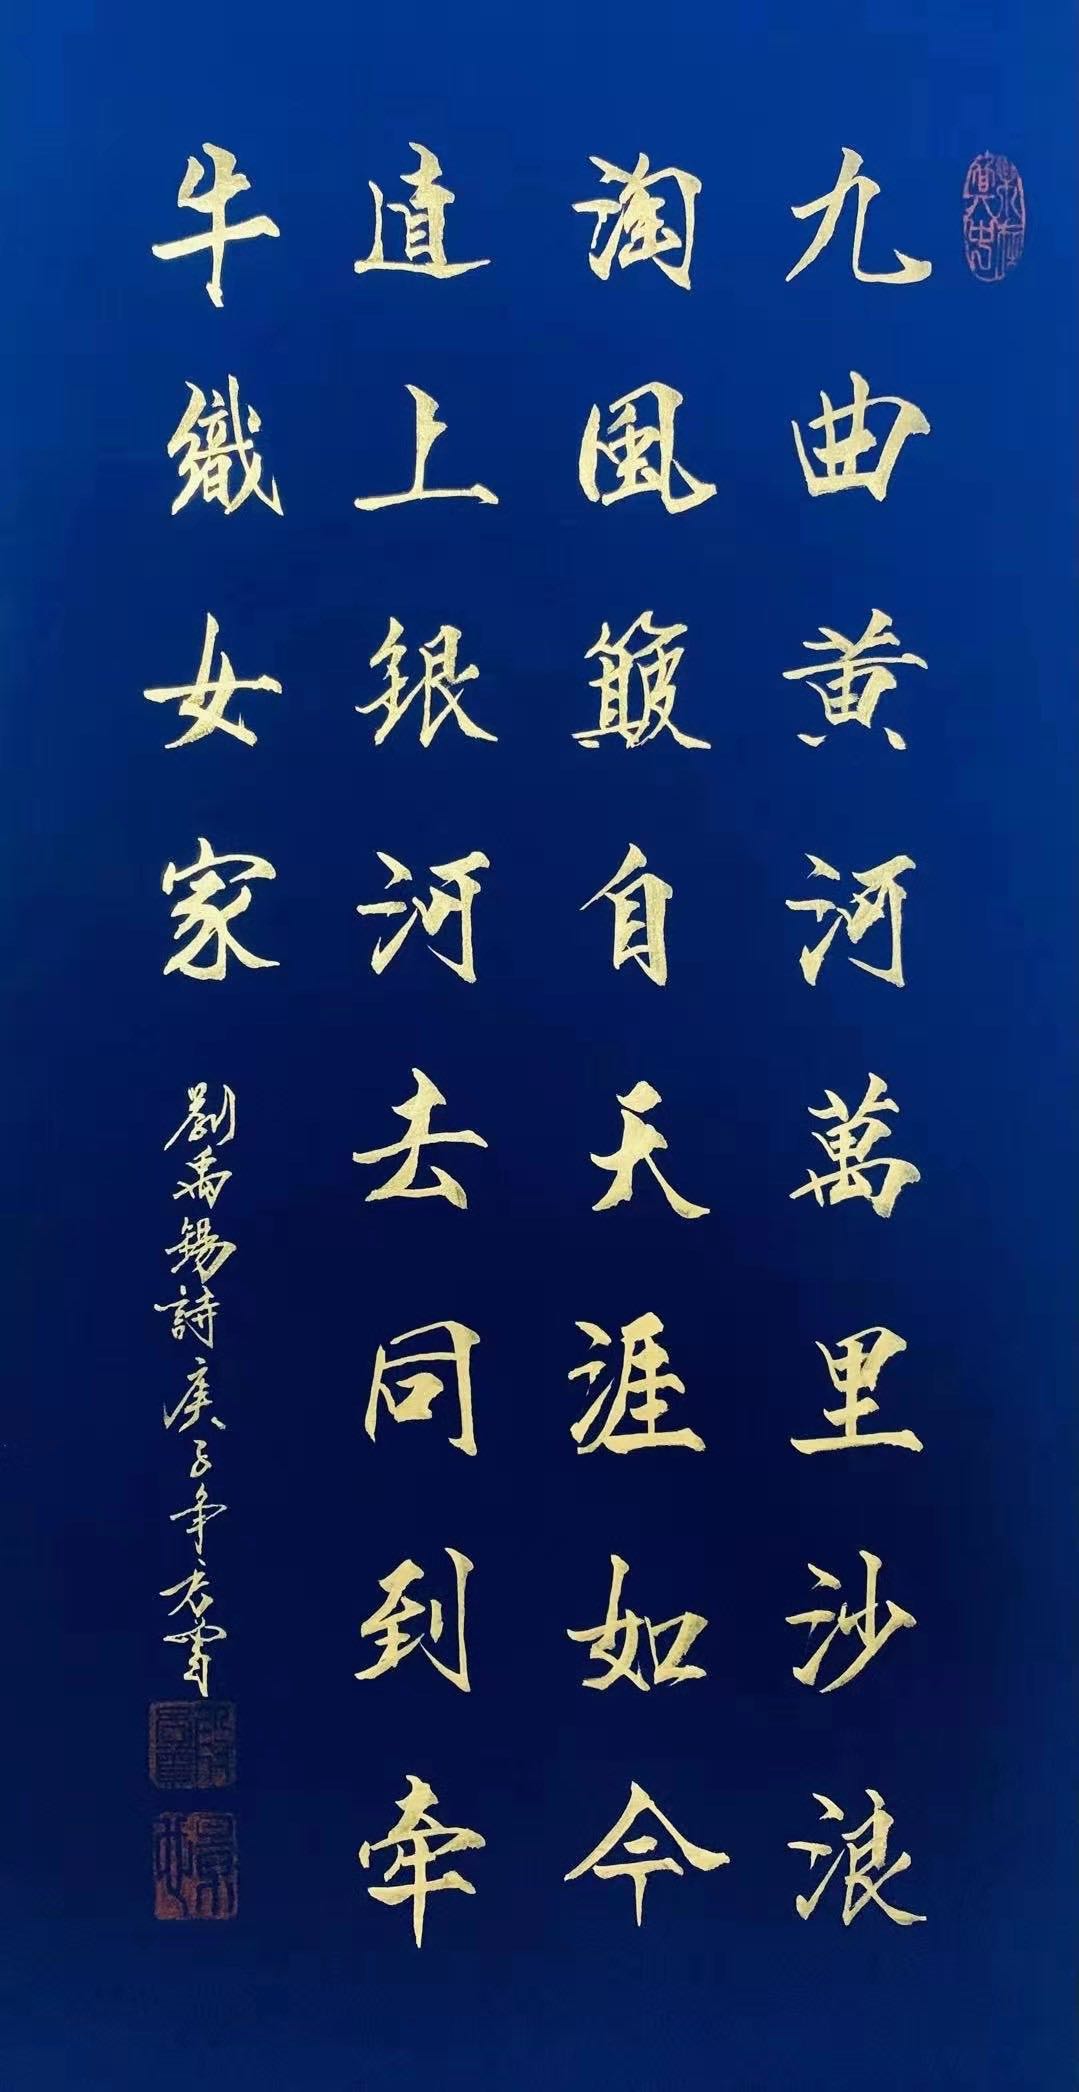 九曲黄河萬里沙浪
淘風簸自天涯如今
直上銀河去同到牽
牛織女家
劉禹錫詩庚子年